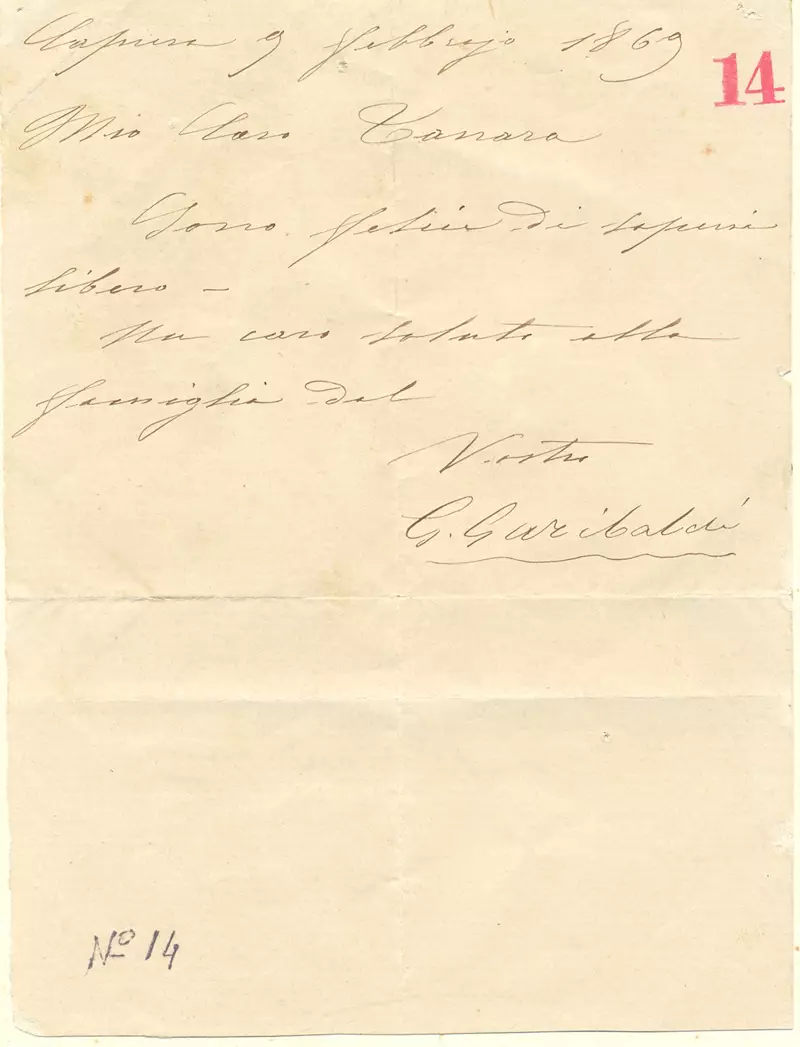 Caprera 9 Febbrajo 1869
14
Mio Caro Tanara
Sono felice di sapervi
libero –
Un caro saluto alla
famiglia dal
Vostro
G. Garibaldi
Nº 14